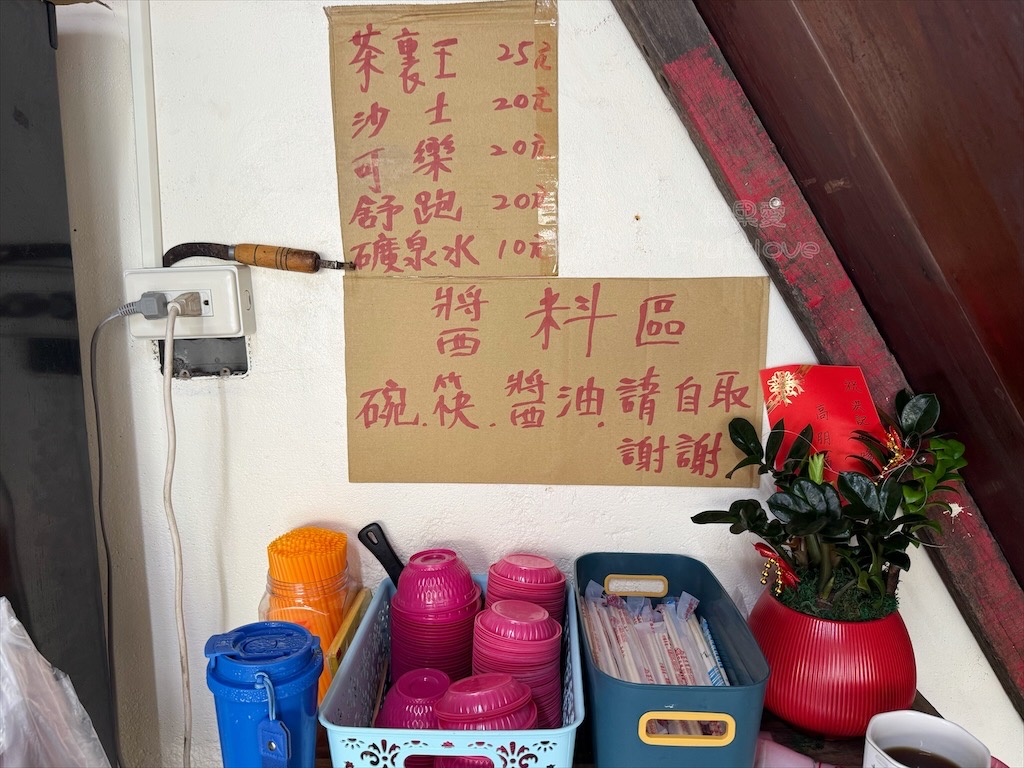 茶裏王 25元
沙士 20元
可樂 20元
舒跑 20元
礦泉水 10元
醬料區
碗.筷.醬油.請自取
謝謝
高朋
果愛
love